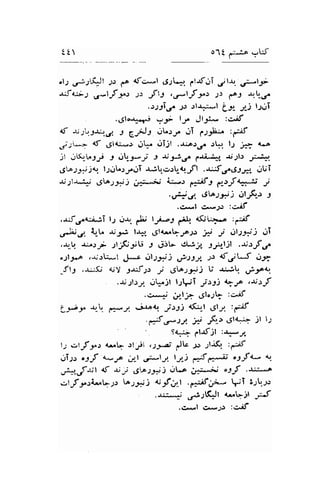 کتاب هشتم ٥٦٤ ٤٤١
خواستی بدانی آن کدام بیماری است که هم در الیگارشی راه
می‌یابد و هم در دموکراسی، و اگر در دموکراسی رخنه کند
آن را زیر یوغ استبداد در می‌آورد.
گفت: سئوال مرا خوب فهمیده‌ای.
گفتم: منظورم آن مردمان ولخرج و بی‌بندوبارند که
همه چیز را بباد می‌دهند. از آن میان دسته‌ای که جسارتی
بیشتر دارند پیشقدم می‌شوند و ترسویان و فرومایگان از
آنان پیروی می‌کنند. اگر بیادت باشد آن مردمان را به زنبورهای
نر تشبیه کردیم و گفتیم دسته نخستین زنبورهای نیشدارند
و دیگران زنبورهای بی‌نیش.
گفت: درست است.
گفتم: همچنانکه بلغم و صفرا نظم بدن را آشفته می‌کند،
آن زنبوران نر نیز در هر جامعه‌ای پیدا شوند مایه بی‌نظمی
می‌گردند. از اینرو پزشک حاذق و قانونگزار خردمند باید،
چون کسانی که در پرورش زنبوران عسل استادند، همواره
بهوش باشند تا زنبورهای نر در کندو لانه نکنند. و اگر
کردند، هرچه زودتر آنها را از میان بردارند.
گفت: چاره‌ای جز این نیست.
گفتم: برای اینکه زودتر بهدف برسیم باید موضوع
را از جنبه‌ای دیگر نیز بررسی کنیم.
پرسید: کدام جنبه؟
گفتم: بگذار در عالم تصور، افراد جامعه دموکرات را
به سه گروه تقسیم کنیم زیرا براستی این هر سه گروه در آن
هستند. گروه نخستین همان زنبورهای نرند که اندکی پیش
دربارهٔ آنها سخن گفتیم. این‌گونه زنبورها در جامعه دموکرات
کمتر از جامعه الیگارشی نیستند.
گفت: درست است.